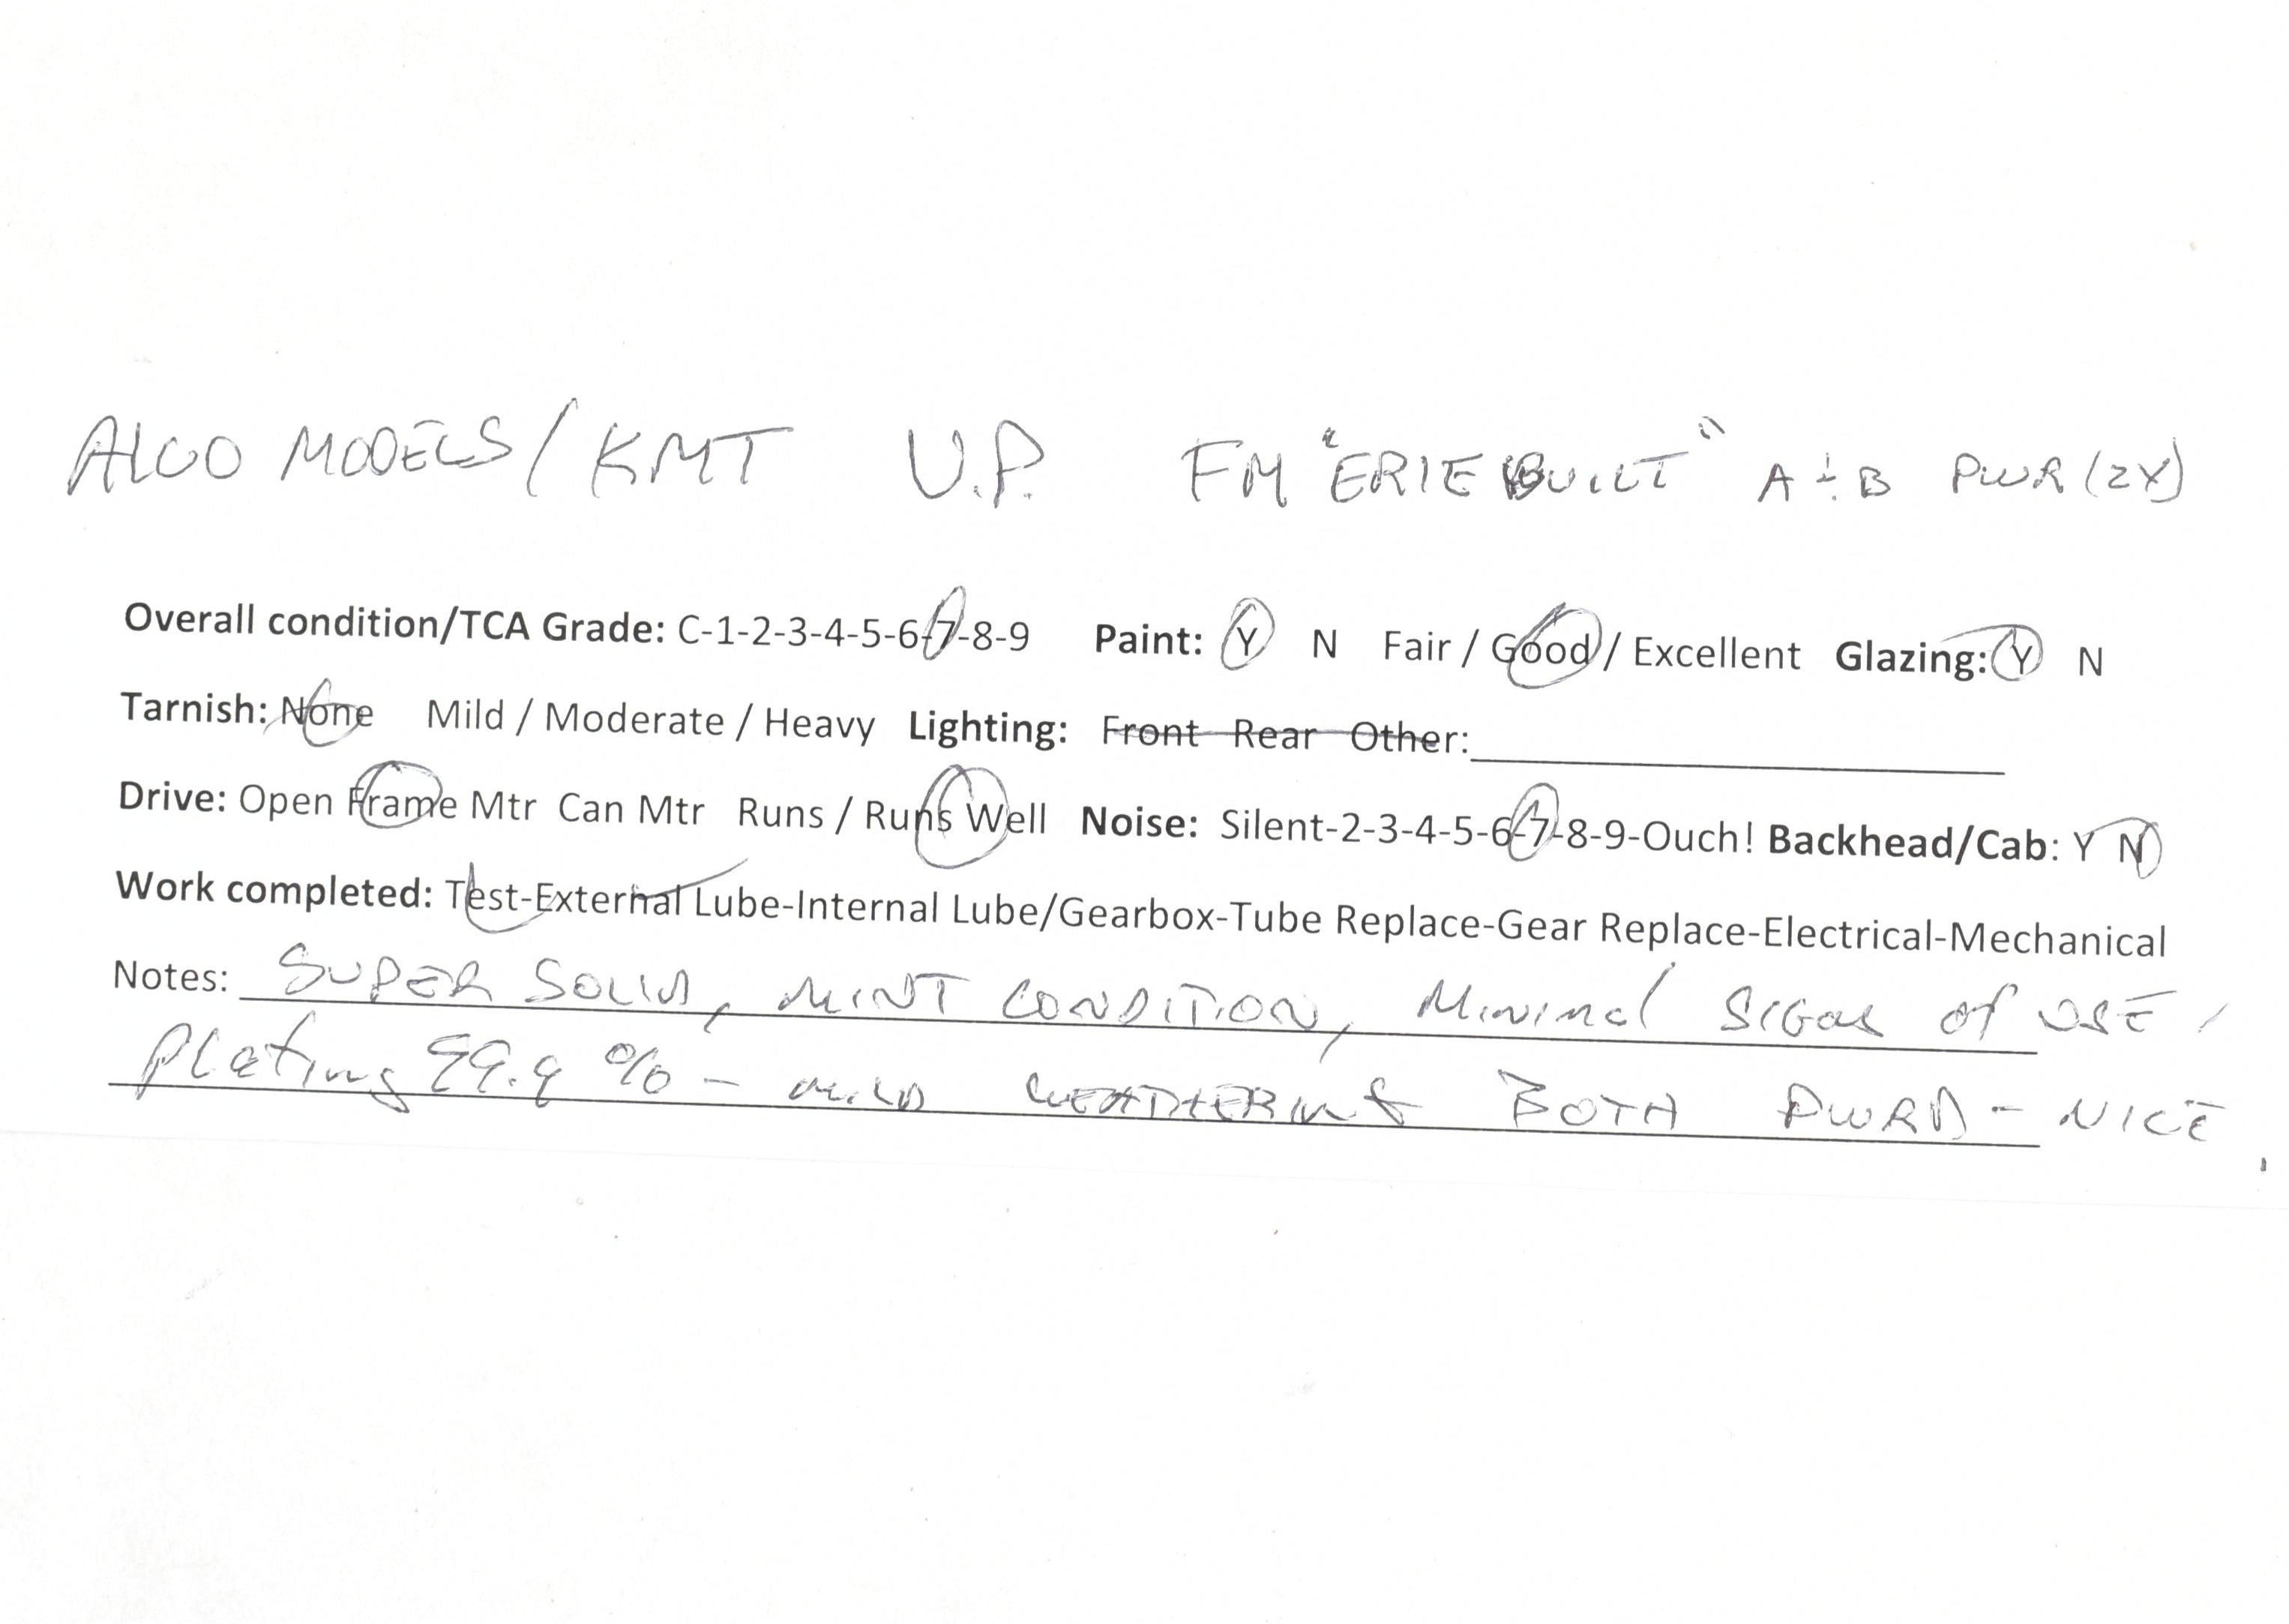 ALCO MODELS/KMT U.P. FM "ERIE BUILT" A & B PWR (2X)
Overall condition/TCA Grade: C-1-2-3-4-5-6-7-8-9 Paint: Y N Fair / Good / Excellent Glazing: Y N
Tarnish: None Mild / Moderate / Heavy Lighting: Front Rear Other:
Drive: Open Frame Mtr Can Mtr Runs / Runs Well Noise: Silent-2-3-4-5-6-7-8-9-Ouch! Backhead/Cab: Y N
Work completed: Test-External Lube-Internal Lube/Gearbox-Tube Replace-Gear Replace-Electrical-Mechanical
Notes: SUPER SOLID, MINT CONDITION, Minimal SIGns of USE,
Plating 99.9 % - MILD WEATHERING BOTH PWRD - NICE.